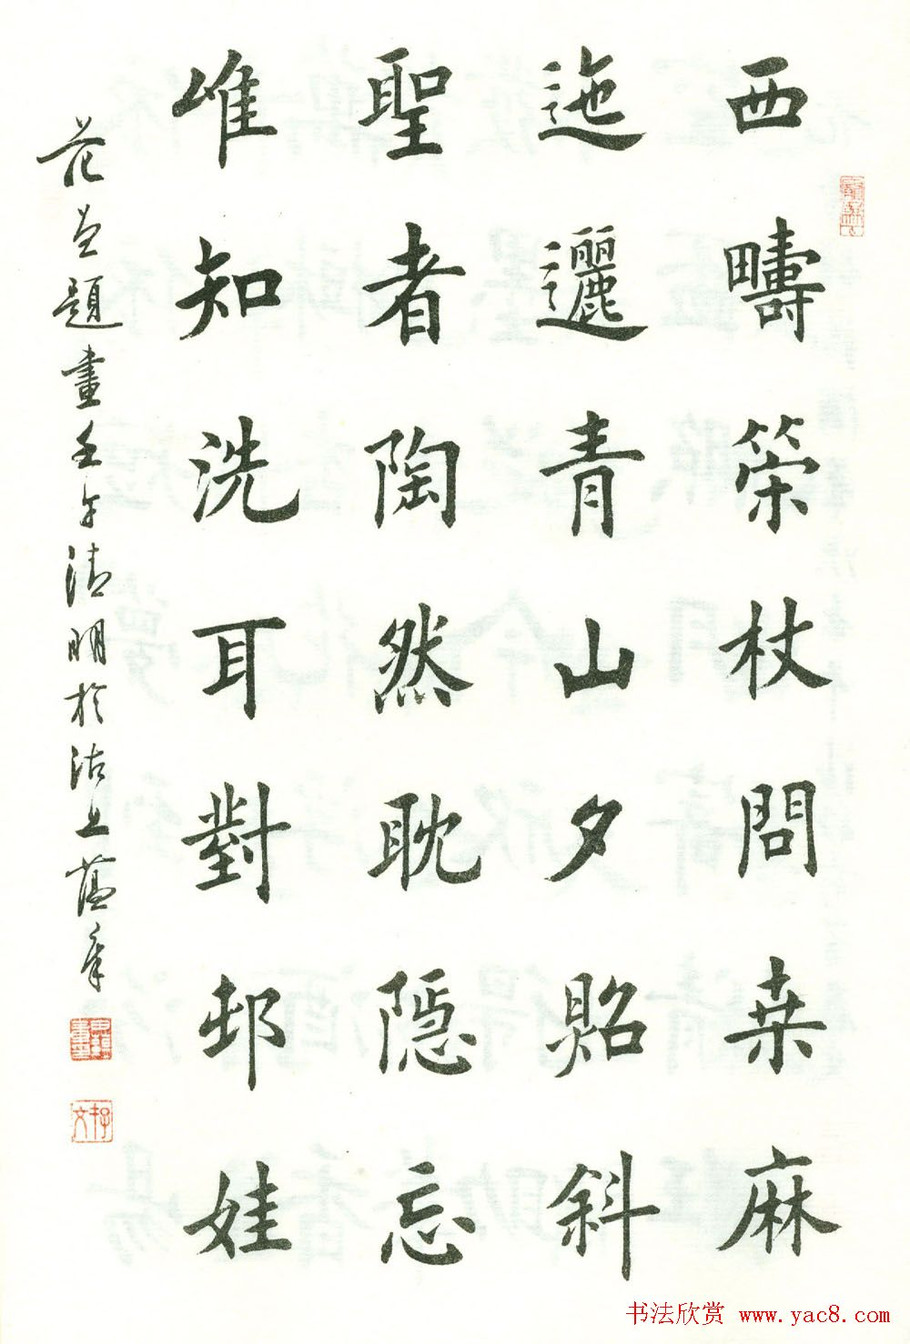 西疇策杖問桒麻
迤邐青山夕照斜
聖者陶然耽隱忘
唯知洗耳對邨娃
范曾題畫壬午清明於沽上蘊章
书法欣赏 www.yac8.com